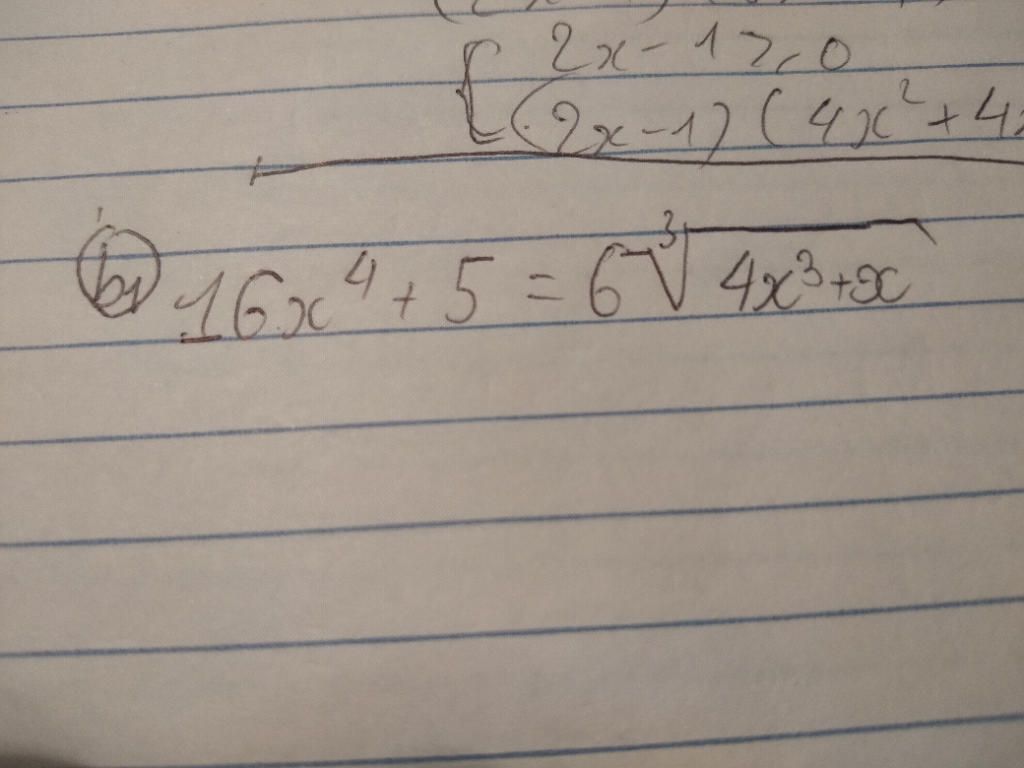 2x-1≥0
(2x-1)(4x²+4x
b, 16x⁴+5=6∛(4x³+x)